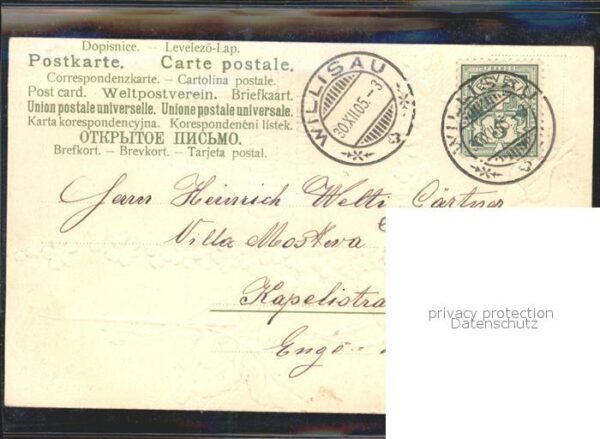 Dopisnice. — Levelező-Lap.
Postkarte. — Carte postale.
Correspondenzkarte. — Cartolina postale.
Post card. — Weltpostverein. — Briefkaart.
Union postale universelle. — Unione postale universale.
Karta korespondencyjna. — Korespondenčni listek.
ОТКРЫТОЕ ПИСЬМО.
Brefkort. — Brevkort. — Tarjeta postal.
WILLISAU
30.XII.05.–3
WILLISAU
Herrn Heinrich Welti Gärtner
Villa Moskova
Engö
privacy protection
Datenschutz